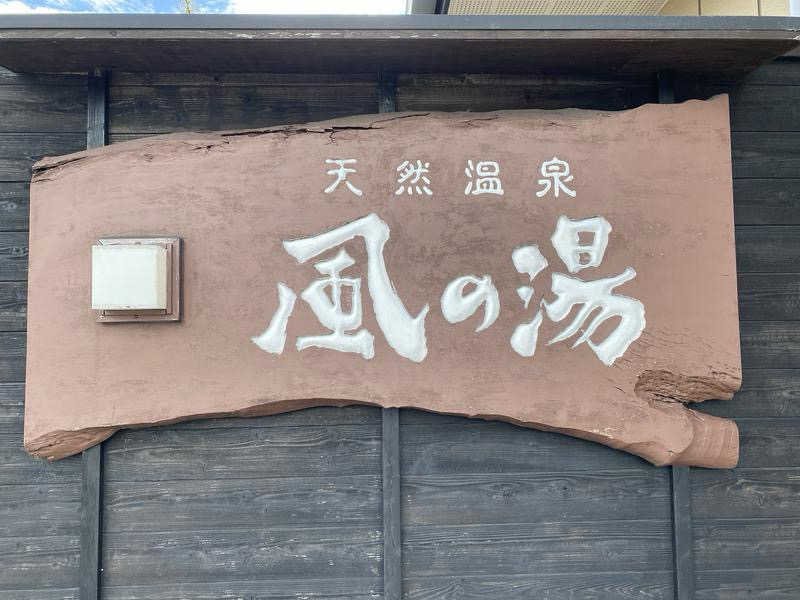 天然温泉
風の湯